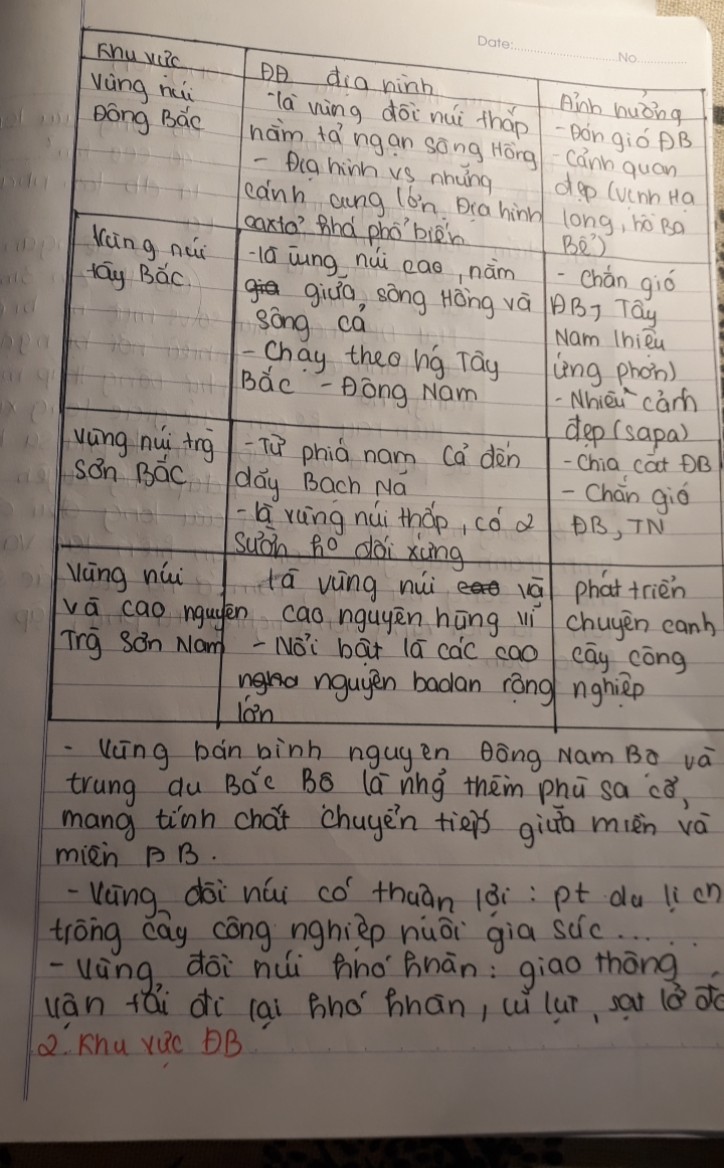 Date: No
Khu vực
ĐĐ địa hình
Ảnh hưởng
Vùng núi
Đông Bắc
- là vùng đồi núi thấp
nằm tả ngạn sông Hồng
- Địa hình vs những
cánh cung lớn. Địa hình
caxtơ khá phổ biến
- Đón gió ĐB
- Cảnh quan
đẹp (Vịnh Hạ
long, hồ Ba
Bể)
Vùng núi
tây Bắc.
- là vùng núi cao, nằm
giữa sông Hồng và
sông cả
- Chạy theo hg Tây
Bắc - Đông Nam
- Chắn gió
ĐB, Tây
Nam (hiệu
ứng phơn)
- Nhiều cảnh
đẹp (sapa)
Vùng núi trg
Sơn Bắc
- Từ phía nam Cả đến
dãy Bạch Mã
- là vùng núi thấp, có 2
sườn ko đối xứng
- Chia cắt ĐB
- Chắn gió
ĐB, TN
Vùng núi
và cao nguyên
Trg Sơn Nam
là vùng núi cao và
cao nguyên hùng vĩ
- Nổi bật là các cao
nguyên badan rộng
lớn
phát triển
chuyên canh
cây công
nghiệp
- Vùng bán bình nguyên Đông Nam Bộ và
trung du Bắc Bộ là nhg thềm phù sa cổ,
mang tính chất chuyển tiếp giữa miền và
miền ĐB.
- Vùng đồi núi có thuận lợi : pt du lịch
trồng cây công nghiệp nuôi gia súc...
- Vùng đồi núi khó khăn : giao thông
vận tải đi lại khó khăn, lũ lụt, sạt lở
2. Khu vực ĐB